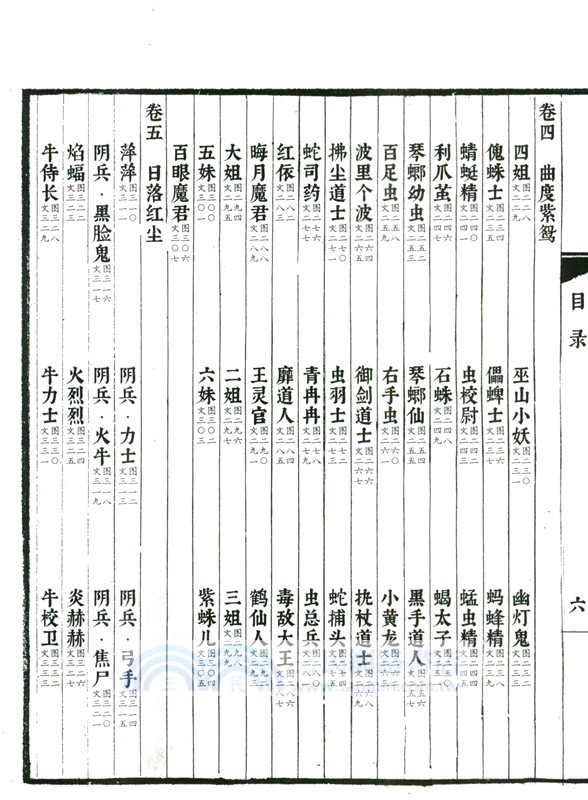 目录 六
卷四 曲度紫鸳
四姐 图二二八 文二二九 巫山小妖 图二三〇 文二三一 幽灯鬼 图二三二 文二三三
傀蛛士 图二三四 文二三五 儡蜱士 图二三六 文二三七 蚂蜂精 图二三八 文二三九
蜻蜓精 图二四〇 文二四一 虫校尉 图二四二 文二四三 蜢虫精 图二四四 文二四五
利爪茧 图二四六 文二四七 石蛛 图二四八 文二四九 蝎太子 图二五〇 文二五一
琴螂幼虫 图二五二 文二五三 琴螂仙 图二五四 文二五五 黑手道人 图二五六 文二五七
百足虫 图二五八 文二五九 右手虫 图二六〇 文二六一 小黄龙 图二六二 文二六三
波里个波 图二六四 文二六五 御剑道士 图二六六 文二六七 抚杖道士 图二六八 文二六九
拂尘道士 图二七〇 文二七一 虫羽士 图二七二 文二七三 蛇捕头 图二七四 文二七五
蛇司药 图二七六 文二七七 青冉冉 图二七八 文二七九 虫总兵 图二八〇 文二八一
红依 图二八二 文二八三 靡道人 图二八四 文二八五 毒敌大王 图二八六 文二八七
晦月魔君 图二八八 文二八九 王灵官 图二九〇 文二九一 鹤仙人 图二九二 文二九三
大姐 图二九四 文二九五 二姐 图二九六 文二九七 三姐 图二九八 文二九九
五妹 图三〇〇 文三〇一 六妹 图三〇二 文三〇三 紫蛛儿 图三〇四 文三〇五
百眼魔君 图三〇六 文三〇七
卷五 日落红尘
萍萍 图三一〇 文三一一 阴兵·力士 图三一二 文三一三 阴兵·弓手 图三一四 文三一五
阴兵·黑脸鬼 图三一六 文三一七 阴兵·火牛 图三一八 文三一九 阴兵·焦尸 图三二〇 文三二一
焰蝠 图三二二 文三二三 火烈烈 图三二四 文三二五 炎赫赫 图三二六 文三二七
牛侍长 图三二八 文三二九 牛力士 图三三〇 文三三一 牛校卫 图三三二 文三三三